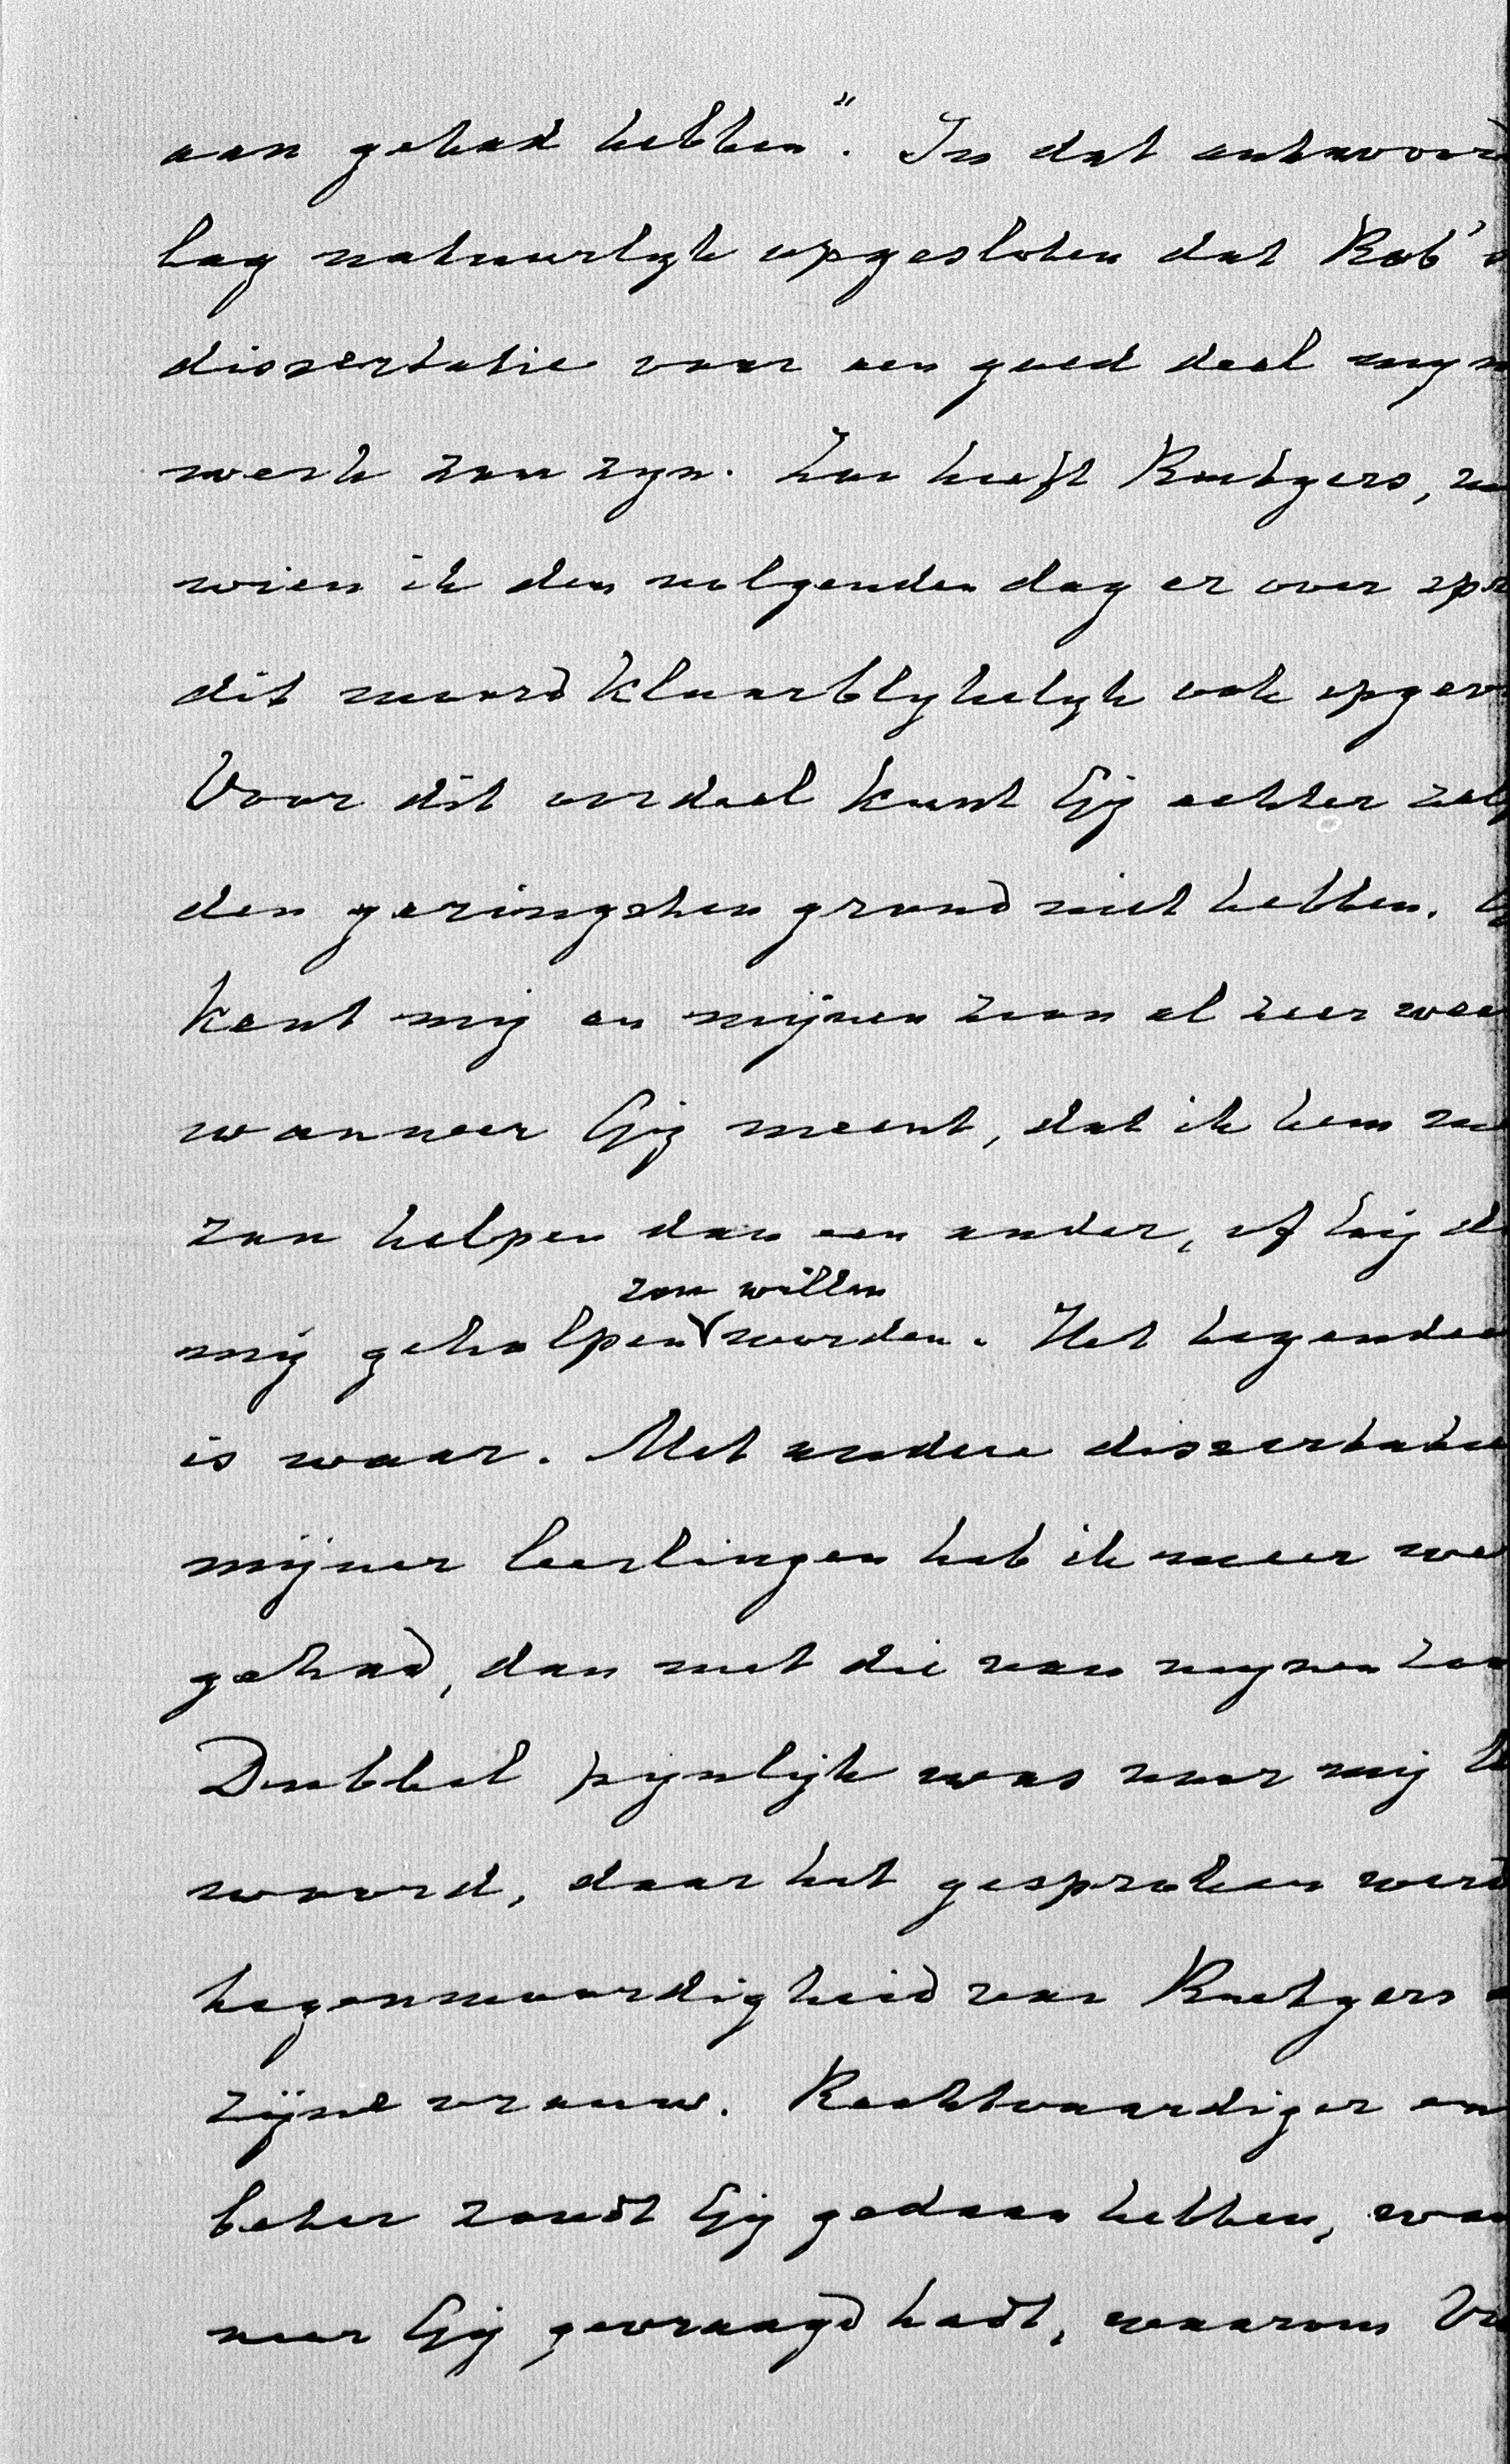 aan gehad hebben". In dat antwoord
lag natuurlijk opgesloten dat Rob's
dissertatie voor een goed deel mijn
werk zou zijn. Zoo heeft Rutgers, 
wien ik den volgenden dag er over spr
dit woord klaarblijkelijk ook opgev
Voor dit oordeel kunt Gij echter zelf
den geringsten grond niet hebben. G
kent mij en mijnen zoon al zeer wei
wanneer Gij meent, dat ik hem me
zou helpen dan een ander, of hij d
zou willen
mij geholpen worden. Het tegendee
is waar. Met andere dissertatie
mijner leerlingen heb ik meer we
gehad, dan met die van mijnen zoo
Dubbel pijnlijk was voor mij
woord, daar het gesproken werd
tegenwoordigheid van Rutgers e
zijne vrouw. Rechtvaardiger en
beter zoudt Gij gedaan hebben, wan
neer Gij gevraagd hadt, waarom